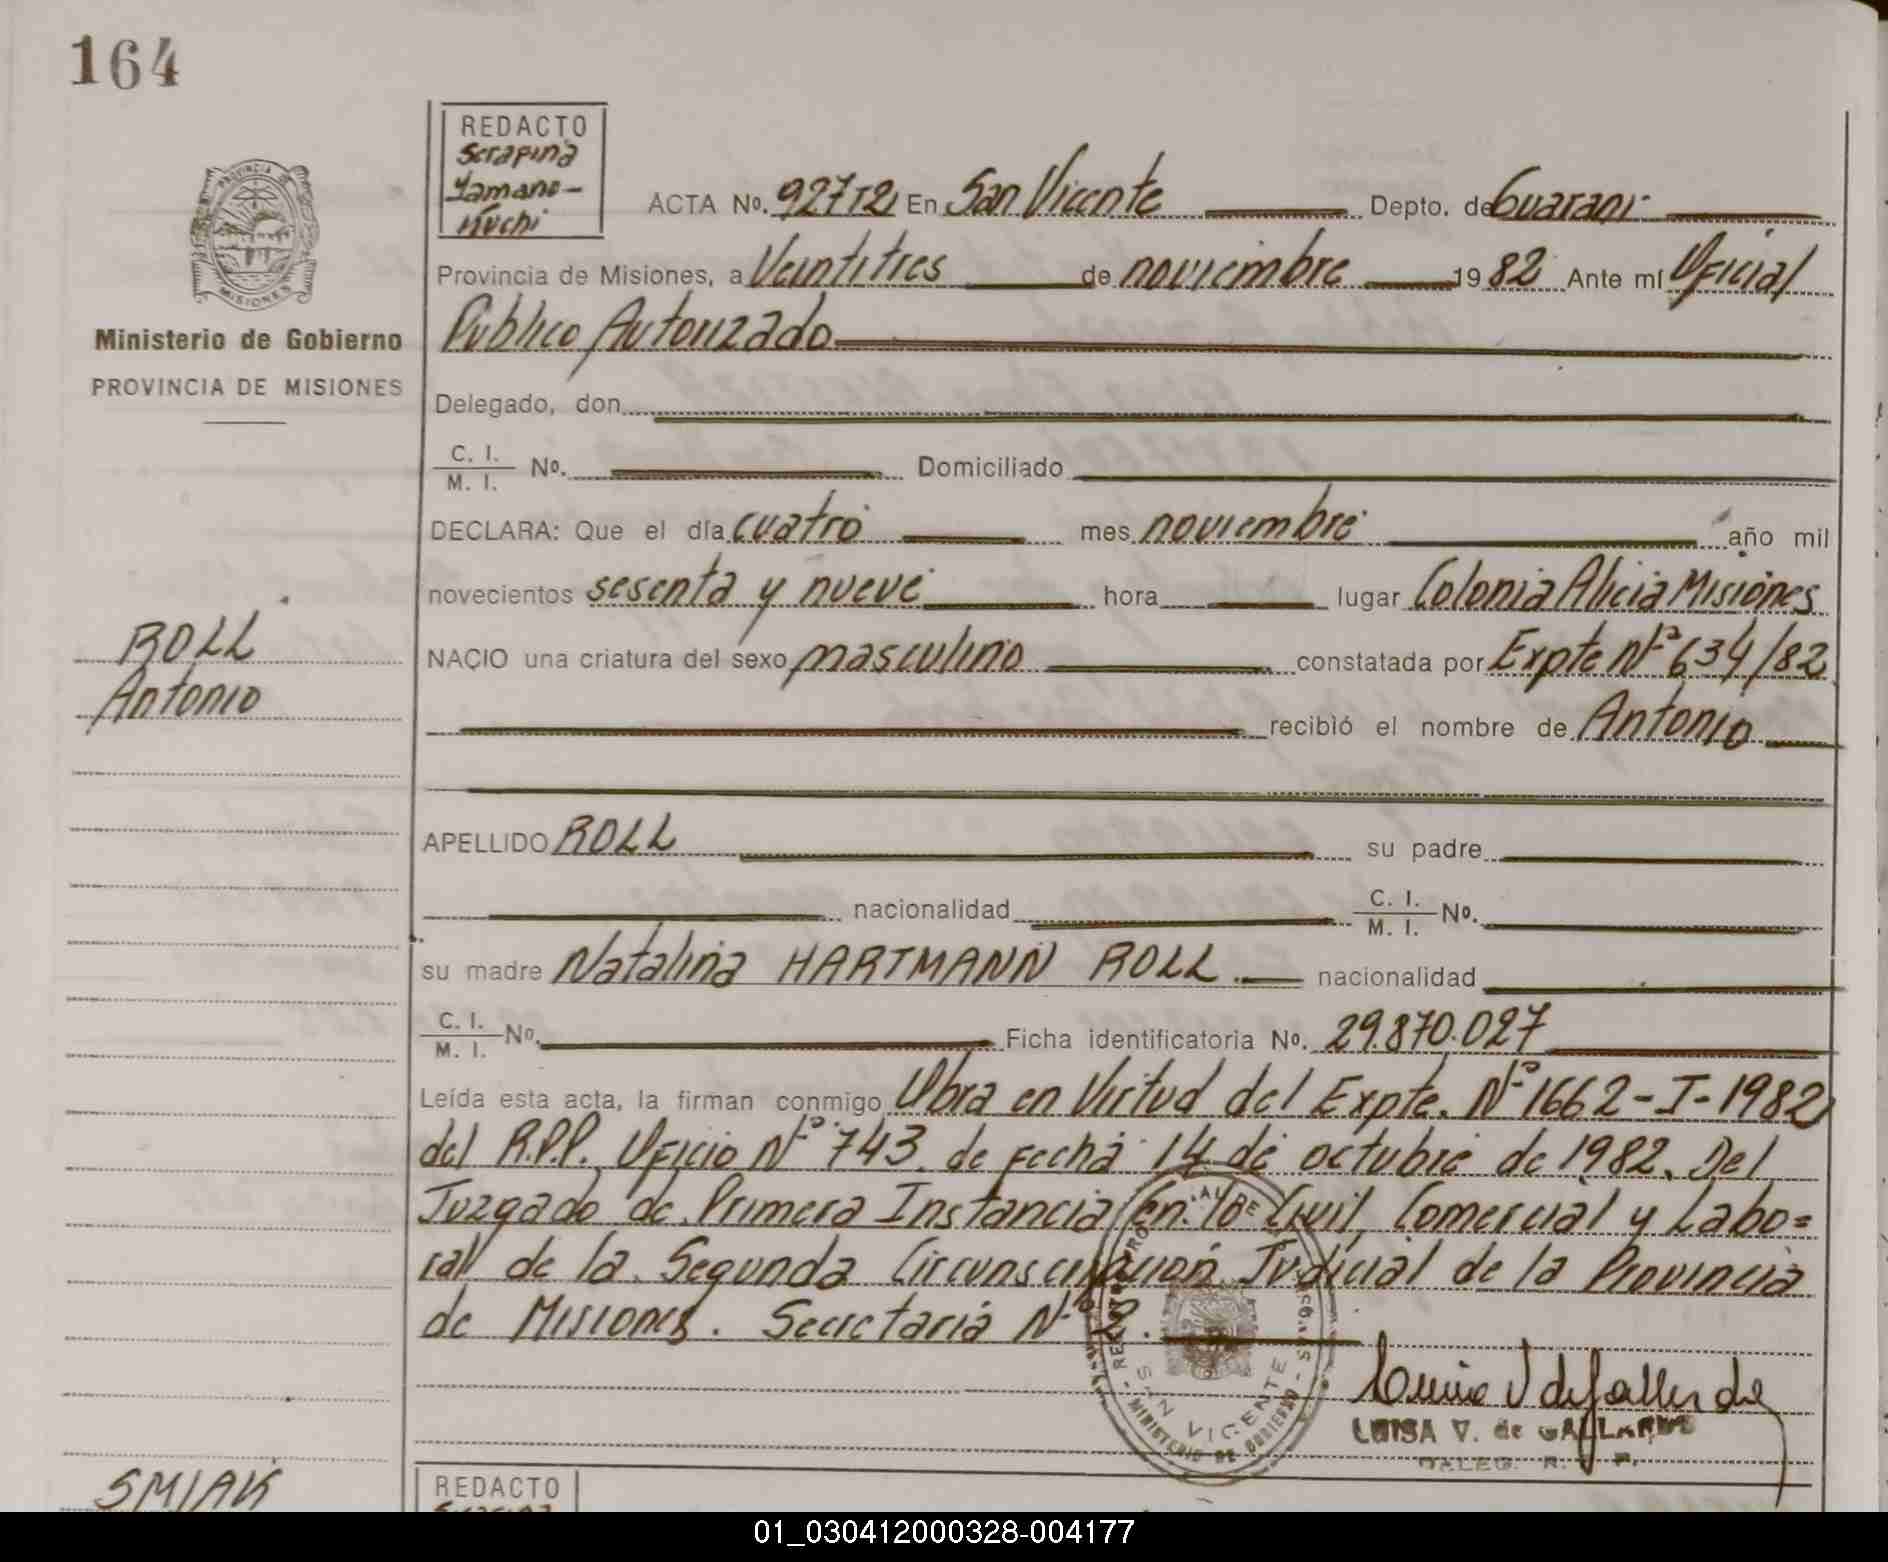 164
REDACTO
Serafina
Yamano-
Kuchi
PROVINCIA DE
MISIONES
Ministerio de Gobierno
PROVINCIA DE MISIONES
ACTA No. 927T2 En San Vicente Depto. de Guarani
Provincia de Misiones, a Veintitres de noviembre 1982 Ante mí Oficial
Publico Autorizado
Delegado, don
C. I.
M. I. No. Domiciliado
DECLARA: Que el día cuatro mes noviembre año mil
novecientos sesenta y nueve hora lugar Colonia Alicia Misiones
ROLL
Antonio
NACIO una criatura del sexo masculino constatada por Expte Nº 634/82
recibió el nombre de Antonio
APELLIDO ROLL su padre
nacionalidad C. I.
M. I. No.
su madre Natalina HARTMANN ROLL. nacionalidad
C. I.
M. I. No. Ficha identificatoria No. 29.870.027
Leída esta acta, la firman conmigo Obra en Virtud del Expte. Nº 1662-I-1982
del R.P.P. Oficio Nº 743. de fecha 14 de octubre de 1982. Del
Juzgado de Primera Instancia en lo Civil, Comercial y Labo=
ral de la Segunda Circunscripción Judicial de la Provincia
de Misiones. Secretaria Nº 2.
SAN VICENTE
MINISTERIO DE GOBIERNO
LUISA V. de GALLARDO
DELEG. R. P.
SMIAK
REDACTO
01_030412000328-004177